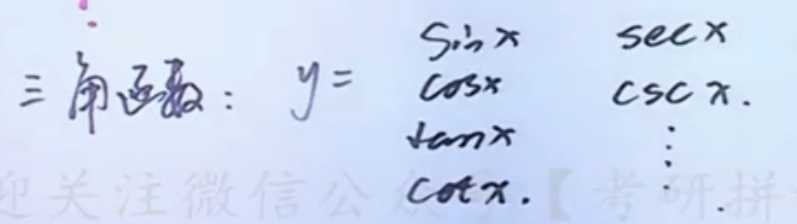 三角函数: y = sinx secx
cosx cscx.
tanx ⋮
cotx.
迎关注微信公众号【考研拼